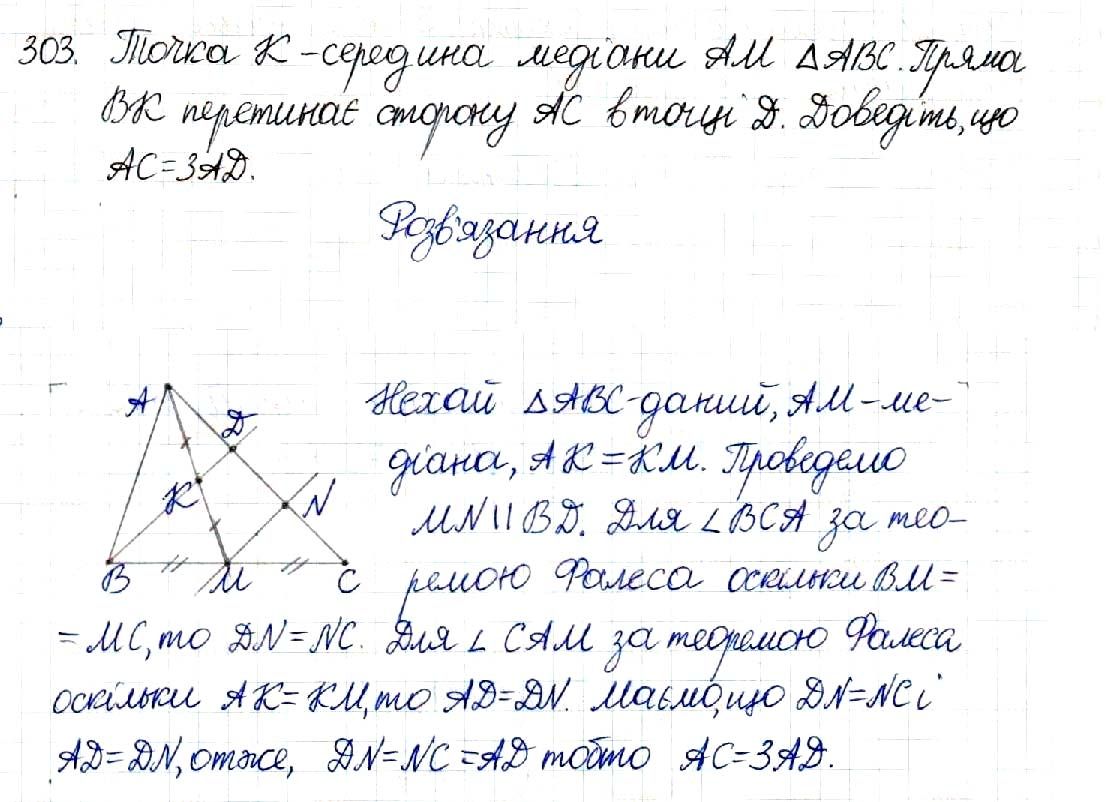 303. Точка К -середина медіани АМ △АВС. Пряма
ВК перетинає сторону АС в точці D. Доведіть, що
АС=3АD.
Розв'язання
А
D
К
N
В
М
С
Нехай △АВС-даний, АМ-ме-
діана, АК=КМ. Проведемо
MN || BD. Для ∠ВСА за тео-
ремою Фалеса оскільки ВМ=
= МС, то DN=NC. Для ∠ САМ за теоремою Фалеса
оскільки АК=КМ, то AD=DN. Маємо, що DN=NC і
AD=DN, отже, DN=NC=AD тобто АС=3AD.